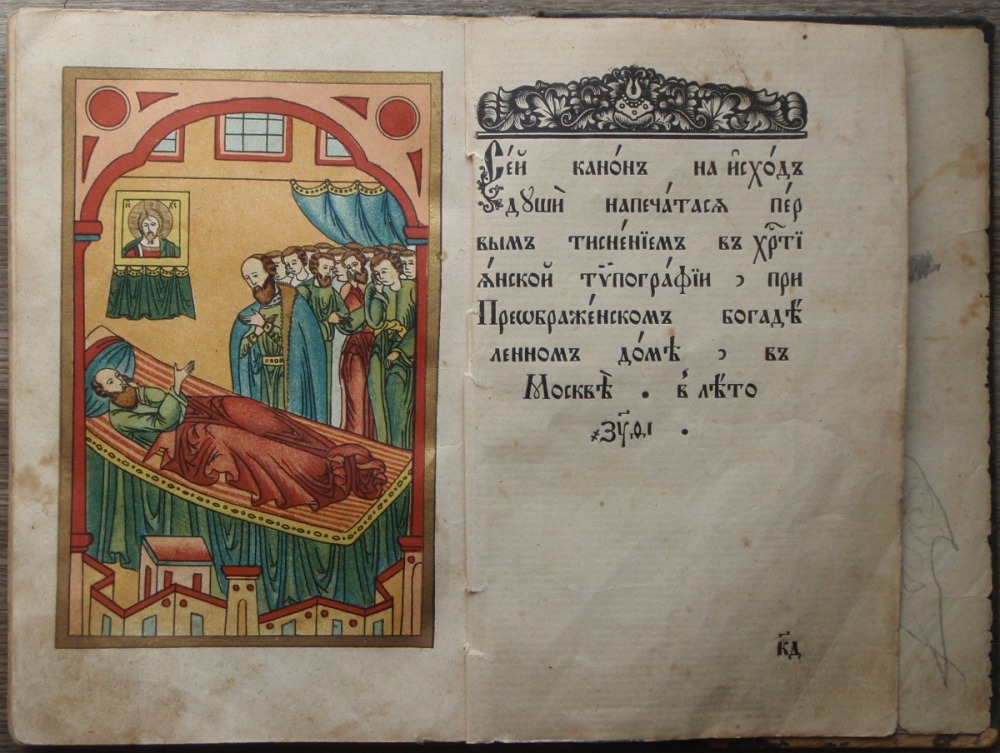 Се́й кано́нъ на и҆схо́дъ
дꙋшѝ напеча́тасѧ пе́р
вымъ тисне́нїемъ въ хрⷭ҇тї
ѧ́нской тѷпогра́фїи , при
Преѡбраже́нскомъ богадѣ́
ленномъ до́мѣ , въ
Москвѣ̀ . в̾ лѣ́то
҂зу҃ѳі .
к҃д